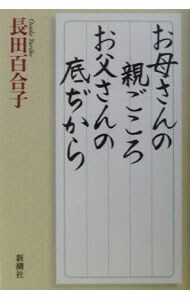 お母さんの
親ごころ
お父さんの
底ぢから
Osada Yuriko
長田百合子
新潮社